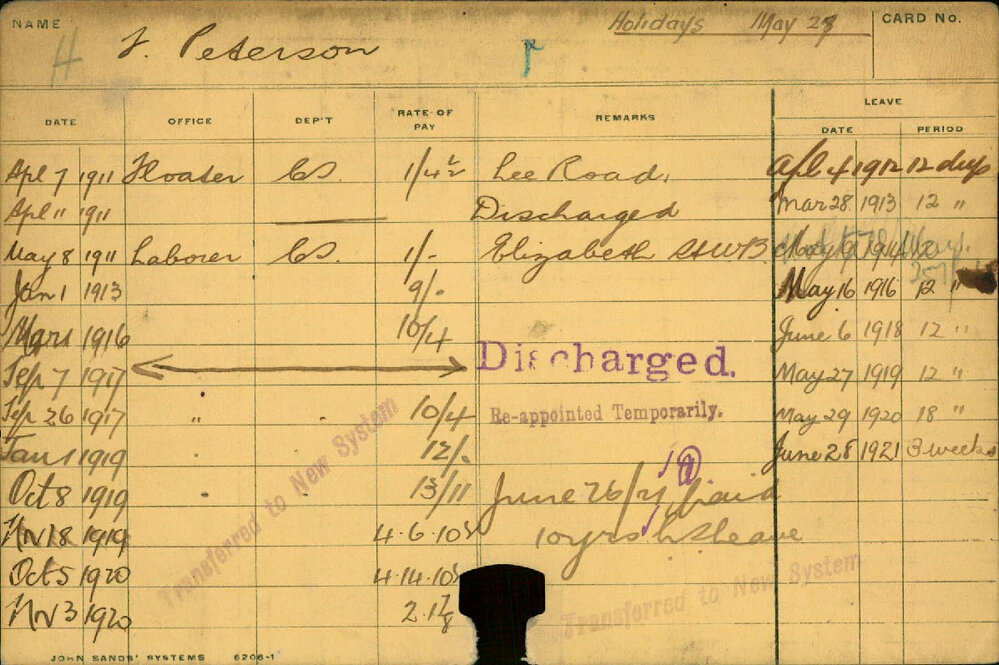 NAME
J. Peterson
Holidays May 27
CARD No.
H
DATE OFFICE DEP'T RATE OF PAY REMARKS LEAVE
DATE PERIOD
Apl 7 1911 Floater CS. 1/4½ Lee Road. Apl 4 1912 12 days
Apl 11 1911 Discharged Mar 28 1913 12 "
May 8 1911 Laborer CS. 1/- Elizabeth St 1914
Jan 1 1913 9/- May 16 1916 12 "
Mar 1 1916 10/4 June 6 1918 12 "
Sep 7 1917 Discharged. May 27 1919 12 "
Sep 26 1917 " " 10/4 Re-appointed Temporarily. May 29 1920 18 "
Jan 1 1919 12/- June 28 1921 3 weeks
Oct 8 1919 " " 13/11 June 26/21 paid
Nov 18 1919 4.6.10½ 10 yrs LS leave
Oct 5 1920 4.14.10½
Nov 3 1920 2.1⅞
Transferred to New System
Transferred to New System
JOHN SANDS' SYSTEMS 6206-1